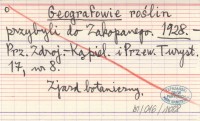 Geografowie roślin
przybyli do Zakopanego. 1928. –
Prz. Zdroj.-Kąpiel. i Przew. Turyst.
17, nr 8.
Zjazd botaniczny.